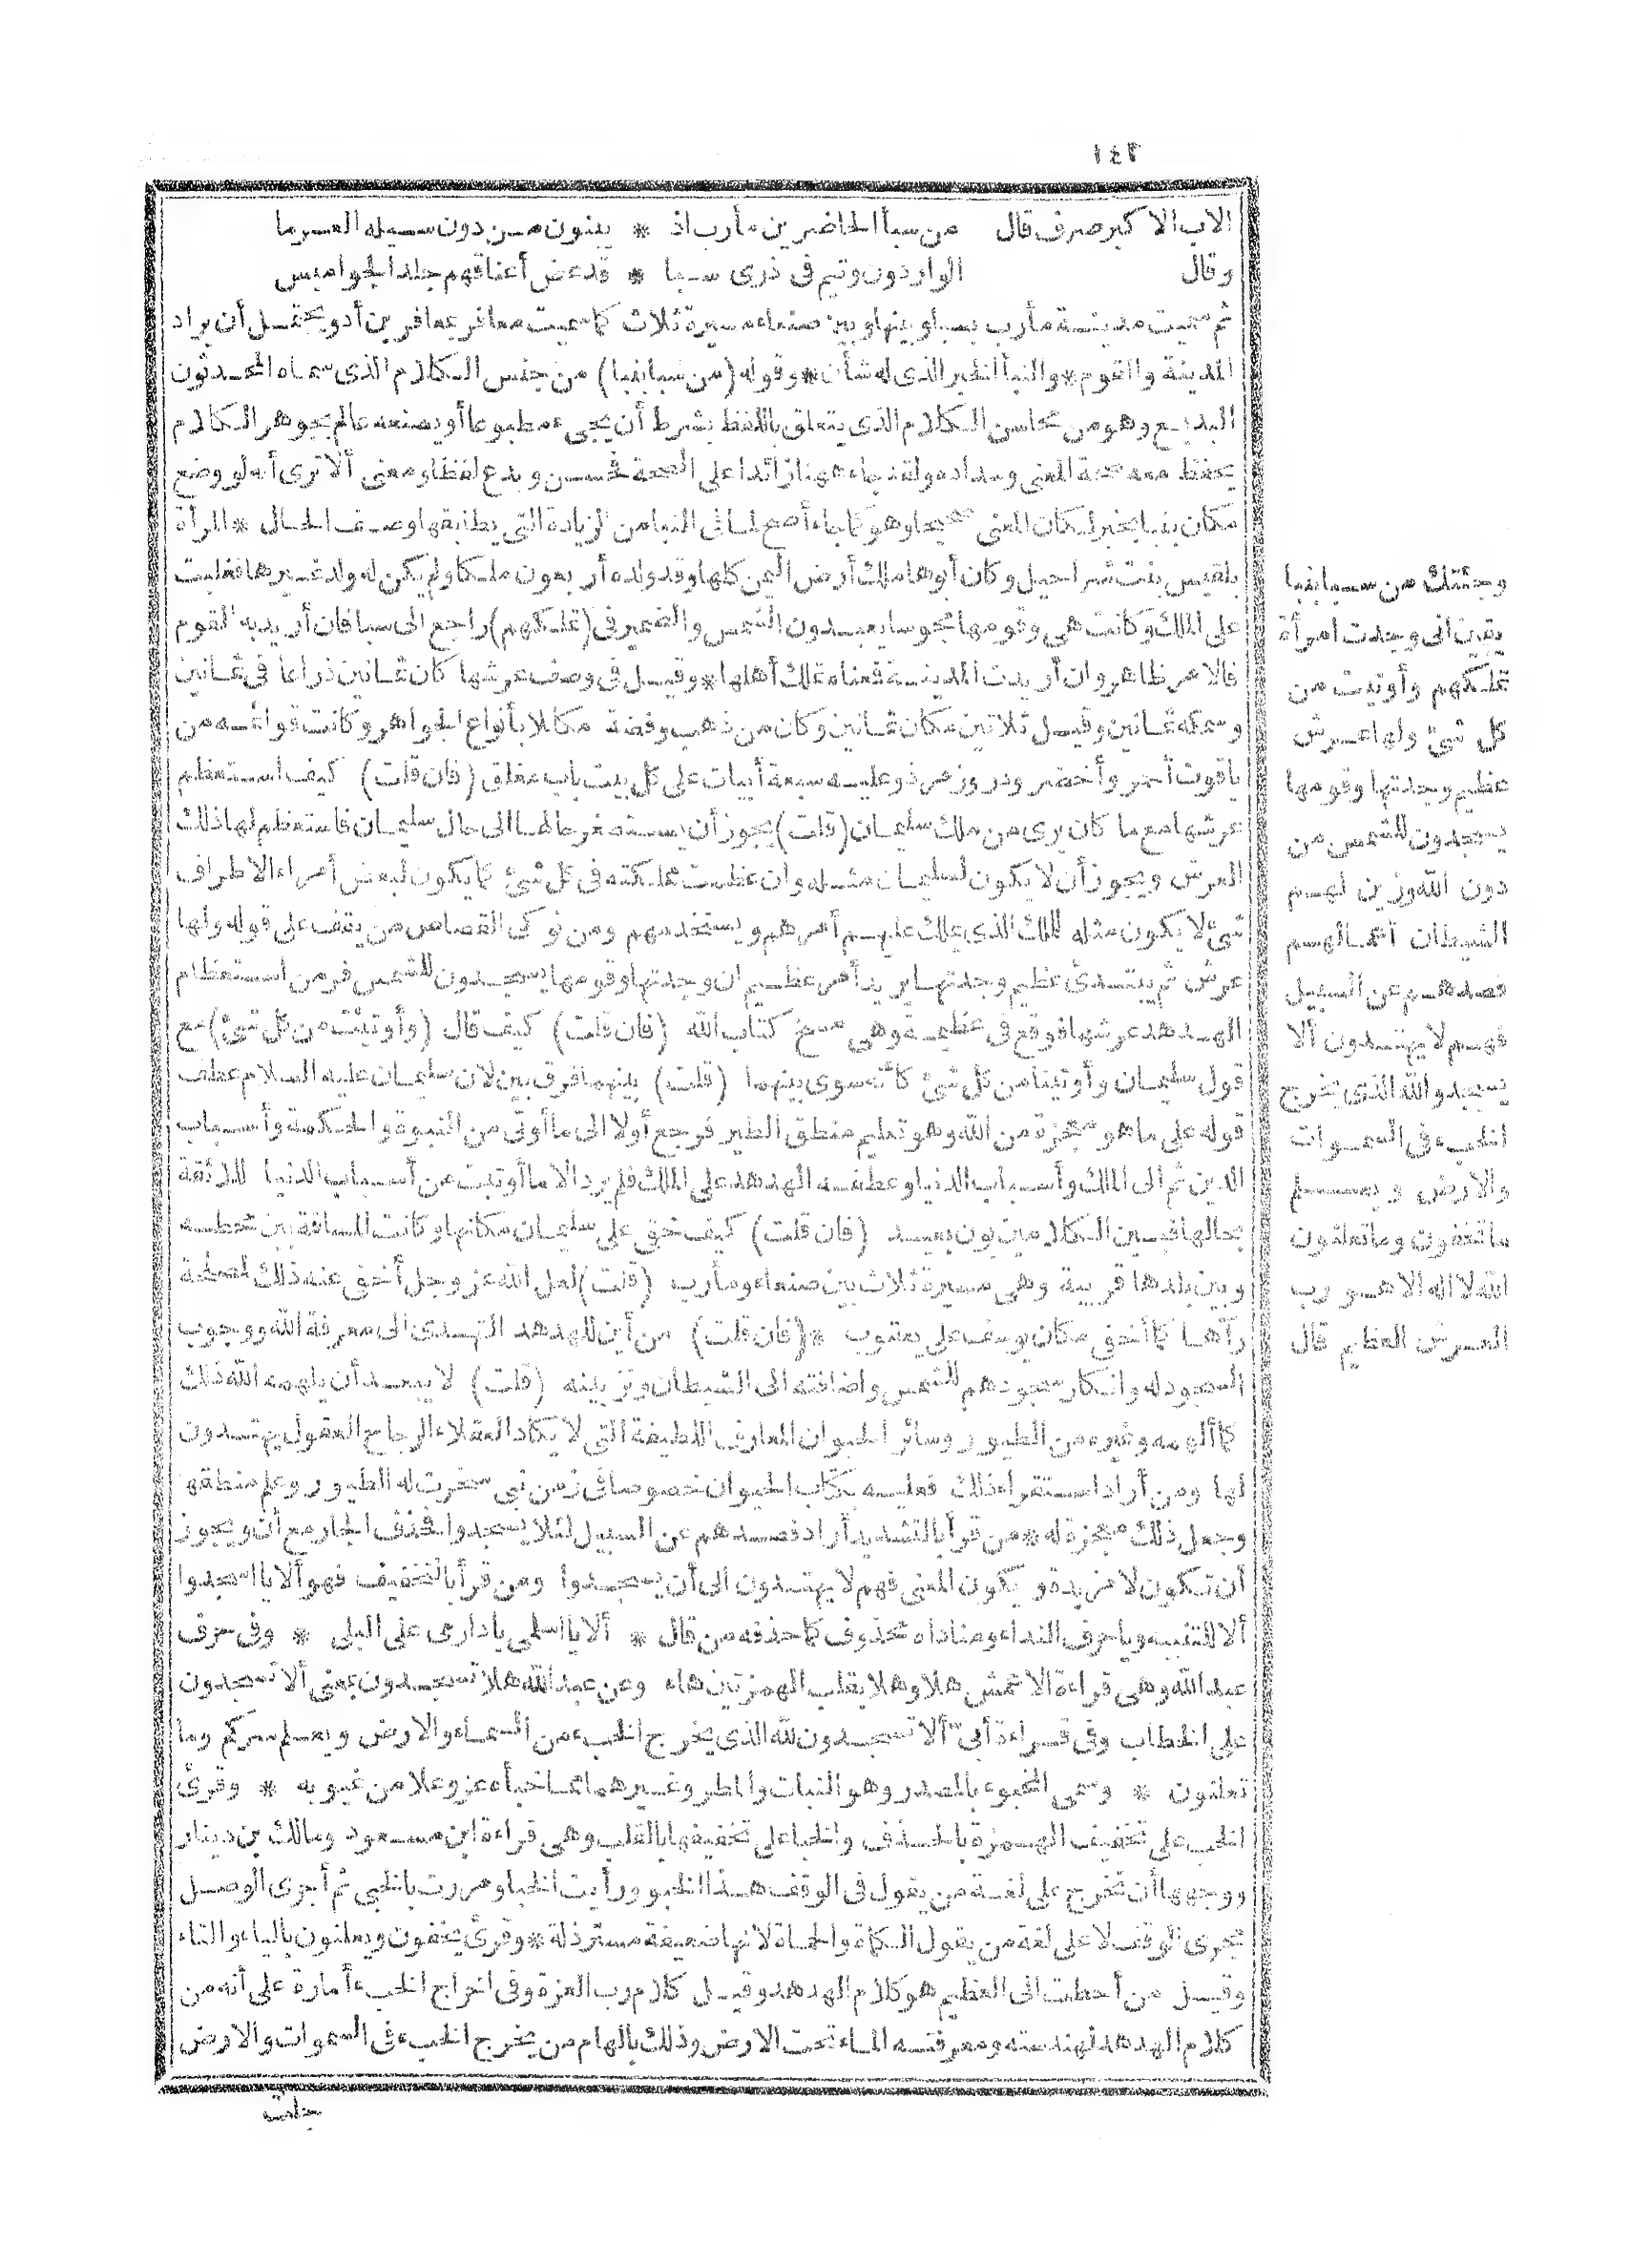 ١٤٢
الاب الاكبر صرف قال من سبأ الحاضرين مأرب اذ * يبنون من دون سيله العرما
وقال الواردون وتيم فى ذرى سبا * قد عض أعناقهم جلد الجواميس
ثم سميت مدينة مأرب بسبا وبينها وبين صنعاء مسيرة ثلاث كما سميت معافر بمعافر بن أدو يحتمل أن يراد
المدينة والقوم * والنبأ الخبر الذى له شأن * وقوله (من سبا بنبا) من جنس الكلام الذى سماه المحدثون
البديع وهو من محاسن الكلام الذى يتعلق باللفظ بشرط أن يجىء مطبوعا أو يصنعه عالم بجوهر الكلام
يحفظ معه صحة المعنى وسداده ولقد جاء ههنا زائدا على الصحة فحسن وبدع لفظا ومعنى ألا ترى أنه لو وضع
مكان بنبا بخبر لكان المعنى صحيحا وهو كما جاء أصح لما فى النبا من الزيادة التى يطابقها وصف الحال * المرأة
بلقيس بنت شراحيل وكان أبوها ملك أرض اليمن كلها وقد ولده أربعون ملكا ولم يكن له ولد غيرها فغلبت
على الملك وكانت هى وقومها مجوسا يعبدون الشمس والضمير فى (تملكهم) راجع الى سبا فان أريد به القوم
فالامر ظاهر وان أريدت المدينة فمعناه تملك أهلها * وقيل فى وصف عرشها كان ثمانين ذراعا فى ثمانين
وسمكه ثمانين وقيل ثلاثين مكان ثمانين وكان من ذهب وفضة مكللا بأنواع الجواهر وكانت قوائمه من
ياقوت أحمر وأخضر ودر وزمرذ وعليه سبعة أبيات على كل بيت باب مغلق (فان قلت) كيف استعظم
عرشها مع ما كان يرى من ملك سليمان (قلت) يجوز أن يستصغر حالها الى حال سليمان فاستعظم لها ذلك
العرش ويجوز أن لا يكون لسليمان مثله وان عظمت مملكته فى كل شئ كما يكون لبعض أمراء الاطراف
شئ لا يكون مثله للملك الذى يملك عليهم أمرهم ويستخدمهم ومن نوكى القصاص من يقف على قوله ولها
عرش ثم يبتدئ عظيم وجدتها يريد أمر عظيم ان وجدتها وقومها يسجدون للشمس فر من استعظام
الهدهد عرشها فوقع فى عظيمة وهى مسخ كتاب الله (فان قلت) كيف قال (وأوتيت من كل شئ) مع
قول سليمان وأوتينا من كل شئ كأنه سوى بينهما (قلت) بينهما فرق بين لان سليمان عليه السلام عطف
قوله على ما هو معجزة من الله وهو تعليم منطق الطير فرجع أولا الى ما أوتى من النبوة والحكمة وأسباب
الدين ثم الى الملك وأسباب الدنيا وعطفه الهدهد على الملك فلم يرد الا ما أوتيت من أسباب الدنيا اللائقة
بحالها فبين الكلامين بون بعيد (فان قلت) كيف خفى على سليمان مكانها وكانت المسافة بين محطه
وبين بلدها قريبة وهى مسيرة ثلاث بين صنعاء ومأرب (قلت) لعل الله عز وجل أخفى عنه ذلك لمصلحة
رآها كما أخفى مكان يوسف على يعقوب * (فان قلت) من أين للهدهد التهدى الى معرفة الله ووجوب
السجود له وانكار سجودهم للشمس واضافته الى الشيطان وتزيينه (قلت) لا يبعد أن يلهمه الله ذلك
كما ألهمه وغيره من الطيور وسائر الحيوان المعارف اللطيفة التى لا يكاد العقلاء الرجاح العقول يهتدون
لها ومن أراد استقراء ذلك فعليه بكتاب الحيوان خصوصا فى زمن نبى سخرت له الطيور وعلم منطقها
وجعل ذلك معجزة له * من قرأ بالتشديد أراد فصدهم عن السبيل لئلا يسجدوا فحذف الجار مع أن ويجوز
أن تكون لا مزيدة ويكون المعنى فهم لا يهتدون الى أن يسجدوا ومن قرأ بالتخفيف فهو ألا يا اسجدوا
ألا للتنبيه ويا حرف النداء ومناداه محذوف كما حذفه من قال * ألا يا اسلمى يا دارمى على البلى * وفى حرف
عبد الله وهى قراءة الاعمش هلا وهلا بقلب الهمزتين هاء وعن عبد الله هلا تسجدون بمعنى ألا تسجدون
على الخطاب وفى قراءة أبىّ ألا تسجدون لله الذى يخرج الخبء من السماء والارض ويعلم سركم وما
تعلنون * وسمى المخبوء بالمصدر وهو النبات والمطر وغيرهما مما خبأه عز وعلا من غيوبه * وقرئ
الخب على تخفيف الهمزة بالحذف والخبا على تخفيفها بالقلب وهى قراءة ابن مسعود ومالك بن دينار
ووجهها أن تخرج على لغة من يقول فى الوقف هذا الخبو ورأيت الخبا ومررت بالخبى ثم أجرى الوصل
مجرى الوقف لا على لغة من يقول الكماة والحماة لانها ضعيفة مسترذلة * وقرئ يخفون ويعلنون بالياء والتاء
وقيل من أحطت الى العظيم هو كلام الهدهد وقيل كلام رب العزة وفى اخراج الخبء أمارة على أنه من
كلام الهدهد لهندسته ومعرفته الماء تحت الارض وذلك بالهام من يخرج الخبء فى السموات والارض
جلت
وجئتك من سبا بنبا
يقين انى وجدت امرأة
تملكهم وأوتيت من
كل شئ ولها عرش
عظيم وجدتها وقومها
يسجدون للشمس من
دون الله وزين لهم
الشيطان أعمالهم
فصدهم عن السبيل
فهم لا يهتدون ألا
يسجدوا لله الذى يخرج
الخبء فى السموات
والارض ويعلم
ما تخفون وما تعلنون
الله لا اله الا هو رب
العرش العظيم قال